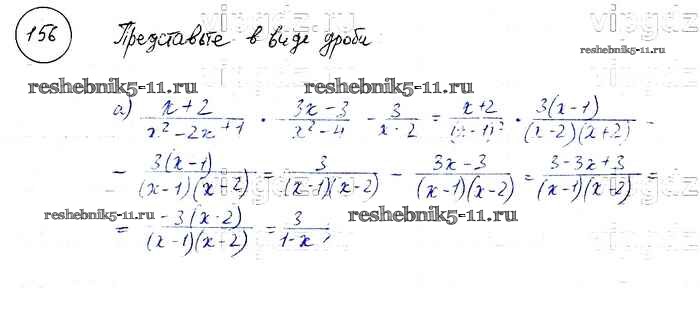 156 Представьте в виде дроби
vipgdz
reshebnik5-11.ru reshebnik5-11.ru
а) x+2/x²-2x+1 · 3x-3/x²-4 - 3/x-2 = x+2/(x-1)² · 3(x-1)/(x-2)(x+2) -
- 3(x-1)/(x-1)(x-2) = 3/(x-1)(x-2) - 3x-3/(x-1)(x-2) = 3-3x+3/(x-1)(x-2) =
reshebnik5-11.ru reshebnik5-11.ru
= -3(x-2)/(x-1)(x-2) = 3/1-x ;